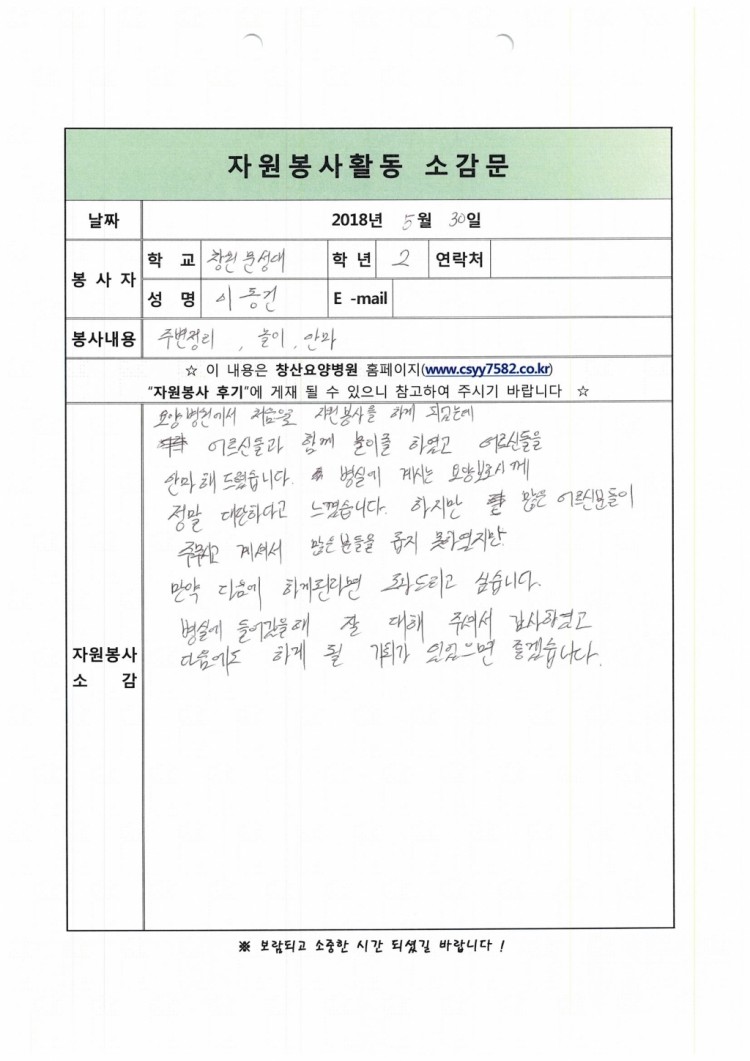 자원봉사활동 소감문
날짜 2018년 5월 30일
봉 사 자 학 교 창원문성대 학 년 2 연락처
성 명 이동건 E -mail
봉사내용 주변정리, 놀이, 안마
☆ 이 내용은 창산요양병원 홈페이지(www.csyy7582.co.kr)
"자원봉사 후기"에 게재 될 수 있으니 참고하여 주시기 바랍니다 ☆
자원봉사
소 감
요양병원에서 처음으로 자원봉사를 하게 되었는데
어르신들과 함께 놀이를 하였고 어르신들을
안마해 드렸습니다. 병실에 계시는 요양보호사께
정말 대단하다고 느꼈습니다. 하지만 많은 어르신분들이
주무시고 계셔서 많은분들을 돕지 못하였지만
만약 다음에 하게된다면 도와드리고 싶습니다.
병실에 들어갔을때 잘 대해 주셔서 감사하였고
다음에도 하게 될 기회가 있었으면 좋겠습니다.
※ 보람되고 소중한 시간 되셨길 바랍니다 !